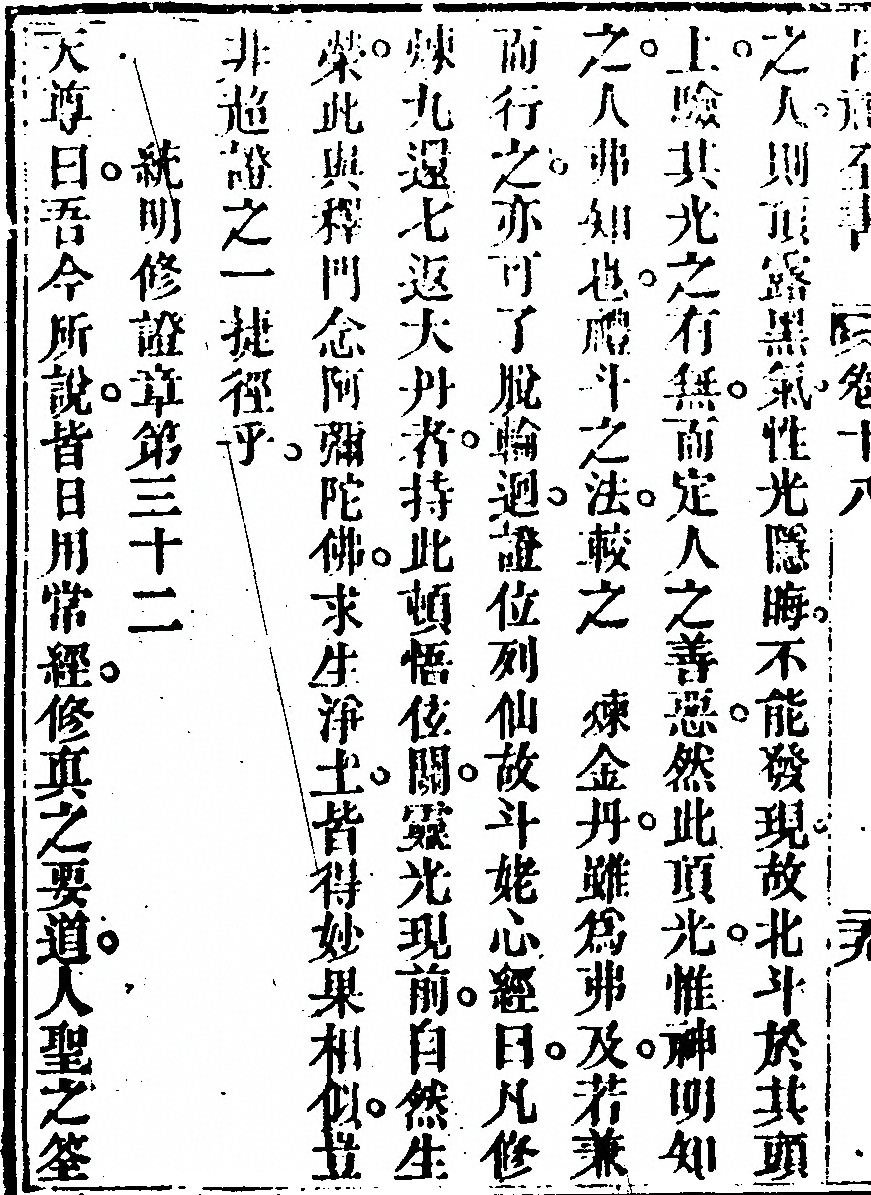 卷十八
之人則頂露黑氣性光隱晦不能發現故北斗於其頭
上驗其光之有無而定人之善惡然此頂光惟神明知
之人弗如也禮斗之法較之　煉金丹雖為弗及若兼
而行之亦可了脫輪迴證位列仙故斗姥心經曰凡修
煉九還七返大丹者持此頓悟伭關靈光現前自然生
榮此與釋門念阿彌陀佛求生淨土皆得妙果相似豈
非超證之一捷徑乎
統明修證章第三十二
天尊曰吾今所說皆日用常經修真之要道人聖之筌